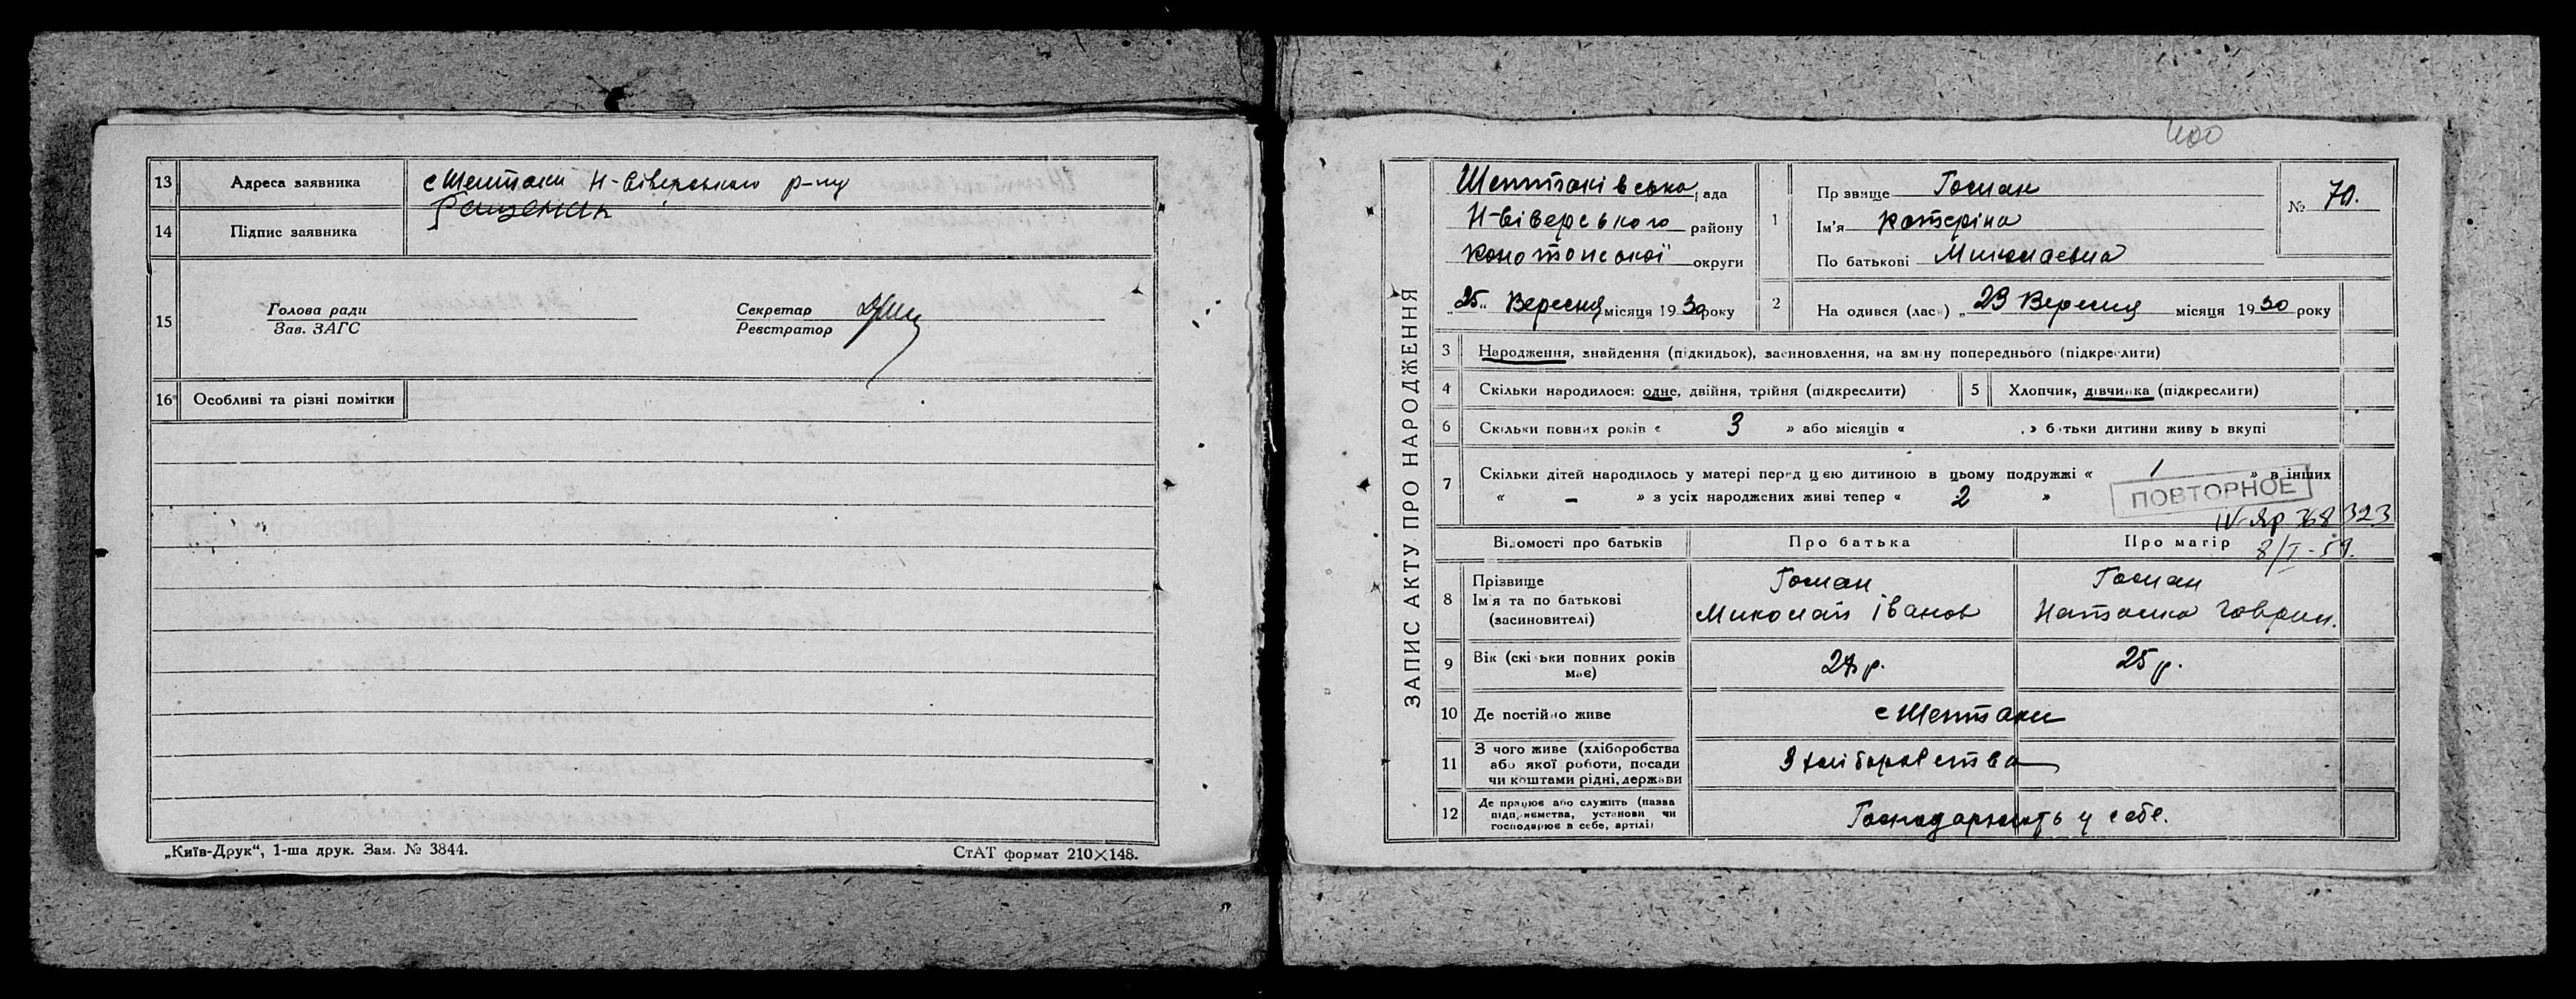 13 Адреса заявника с Шептаки Н-Сіверського р-ну
14 Підпис заявника
15 Голова ради
Зав. ЗАГС
Секретар
Реєстратор
16 Особливі та різні помітки
„Київ-Друк“, 1-ша друк. Зам. № 3844.
СтАТ формат 210×148.
400
ЗАПИС АКТУ ПРО НАРОДЖЕННЯ
Шептаківська рада
Н-Сіверського району
Конотопської округи
„25„ Вересня місяця 1930 року
1 Прізвище Госман
Ім'я Катеріна
По батькові Миколаевна
№ 70.
2 На одився (лась) „ 23 Вересня місяця 1930 року
3 Народження, знайдення (підкидьок), засиновлення, на зміну попереднього (підкреслити)
4 Скільки народилося: одне, двійня, трійня (підкреслити)
5 Хлопчик, дівчинка (підкреслити)
6 Скільки повних років « 3 » або місяців « » батьки дитини живуть вкупі
7 Скільки дітей народилось у матері перед цією дитиною в цьому подружжі « 1 » в інших
« – » з усіх народжених живі тепер « 2 »
ПОВТОРНОЕ
IV-ЯР 368323
8/I-59.
Відомості про батьків
Про батька
Про матір
8 Прізвище
Ім'я та по батькові
(засиновителі)
Госман
Миколай Іванов
Госман
Наталка Гаврил.
9 Вік (скільки повних років
має)
25 р.
10 Де постійно живе с Шептаки
11 З чого живе (хліборобства
або якої роботи, посади
чи коштами рідні, держави
З хліборобства
12 Де працює або служить (назва
підприємства, установи чи
господарює в себе, артілі)
Господарюють у себе.